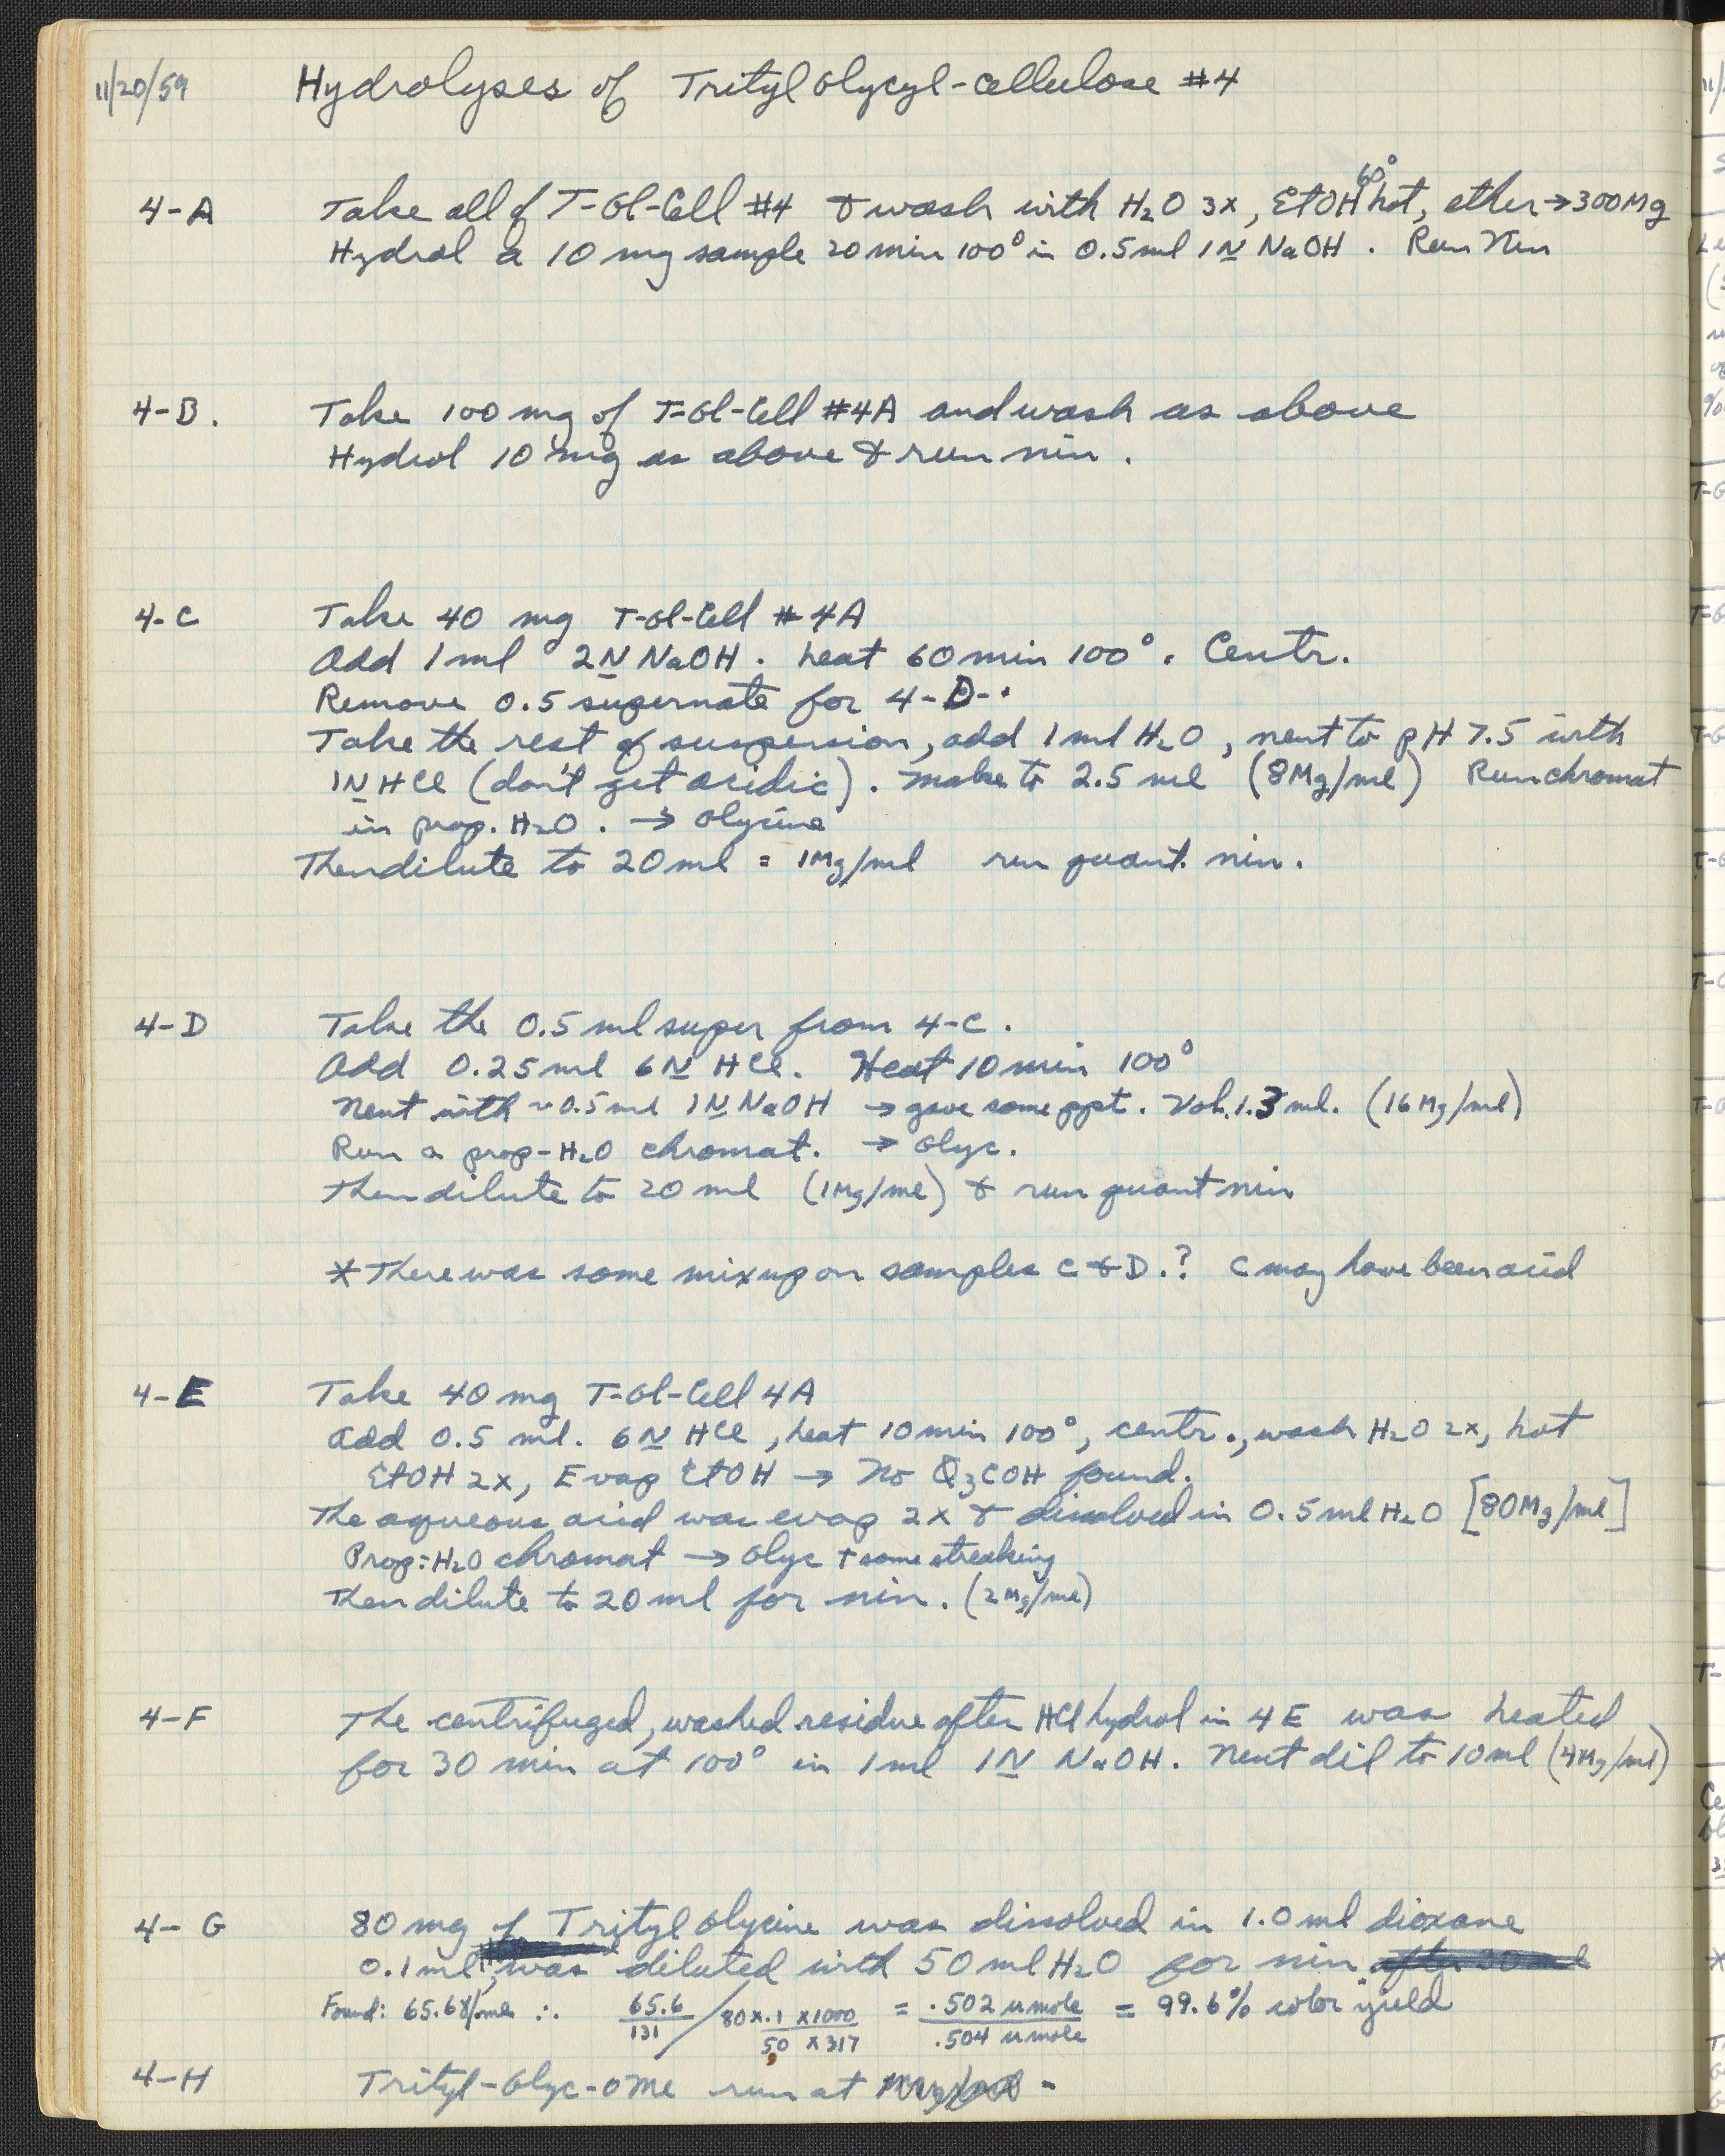 11/20/59 Hydrolyses of Trityl Glycyl-cellulose #4
4-A Take all of T-Gl-Cell #4 & wash with H2O 3x, EtOH 60° hot, ether → 300 Mg
Hydrol a 10 mg sample 20 min 100° in 0.5 ml 1N NaOH. Run Nin
4-B. Take 100 mg of T-Gl-Cell #4A and wash as above
Hydrol 10 mg as above & run nin.
4-C Take 40 mg T-Gl-Cell #4A
Add 1 ml 2N NaOH. heat 60 min 100°. Centr.
Remove 0.5 supernate for 4-D-.
Take the rest of suspension, add 1 ml H2O, neut to pH 7.5 with
1N HCl (don't get acidic). make to 2.5 ml (8 Mg/ml) Run chromat
in prop. H2O. → Glycine
Then dilute to 20 ml = 1 Mg/ml run quant. nin.
4-D Take the 0.5 ml super from 4-C.
Add 0.25 ml 6N HCl. Heat 10 min 100°
Neut with ~0.5 ml 1N NaOH → gave some ppt. Vol. 1.3 ml. (16 Mg/ml)
Run a prop-H2O chromat. → Glyc.
Then dilute to 20 ml (1 Mg/ml) & run quant nin
* There was some mixup on samples C & D.? C may have been acid
4-E Take 40 mg T-Gl-Cell 4A
Add 0.5 ml. 6N HCl, heat 10 min 100°, centr., wash H2O 2x, hot
EtOH 2x, Evap EtOH → No Φ3COH found.
The aqueous acid was evap 2x & dissolved in 0.5 ml H2O [80 Mg/ml]
Prop:H2O chromat → Glyc + some streaking
Then dilute to 20 ml for nin. (2 Mg/ml)
4-F The centrifuged, washed residue after HCl hydrol in 4E was heated
for 30 min at 100° in 1 ml 1N NaOH. Neut dil to 10 ml (4 Mg/ml)
4-G 80 mg of Trityl Glycine was dissolved in 1.0 ml dioxane
0.1 ml was diluted with 50 ml H2O for nin.
Found: 65.6γ/ml ∴ 65.6/131 / 80 x .1 x 1000/50 x 317 = .502 umole/.504 umole = 99.6% color yield
4-H Trityl-Glyc-OMe run at